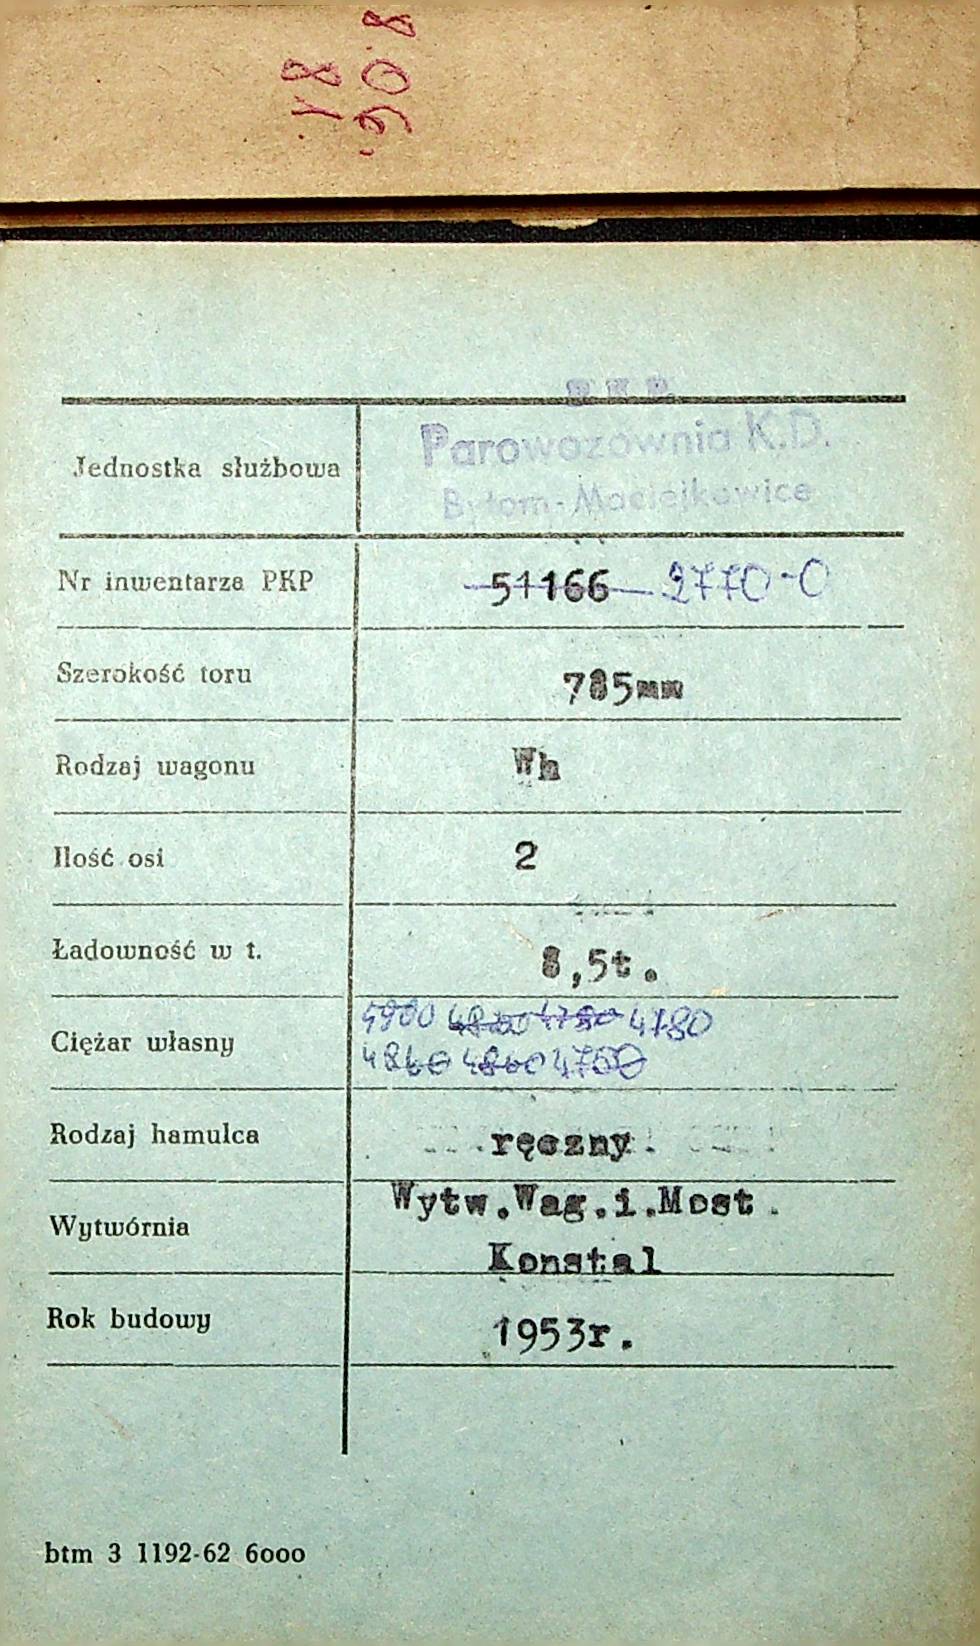 P.K.P.
Jednostka służbowa Parowozownia K.D.
Bytom-Maciejkowice
Nr inwentarza PKP 51166 2770-0
Szerokość toru 785mm
Rodzaj wagonu Wh
Ilość osi 2
Ładowność w t. 8,5t.
Ciężar własny 4780
4860 4860 4750
Rodzaj hamulca ręczny.
Wytwórnia Wytw.Wag.i.Most.
Konstal
Rok budowy 1953r.
btm 3 1192-62 6000